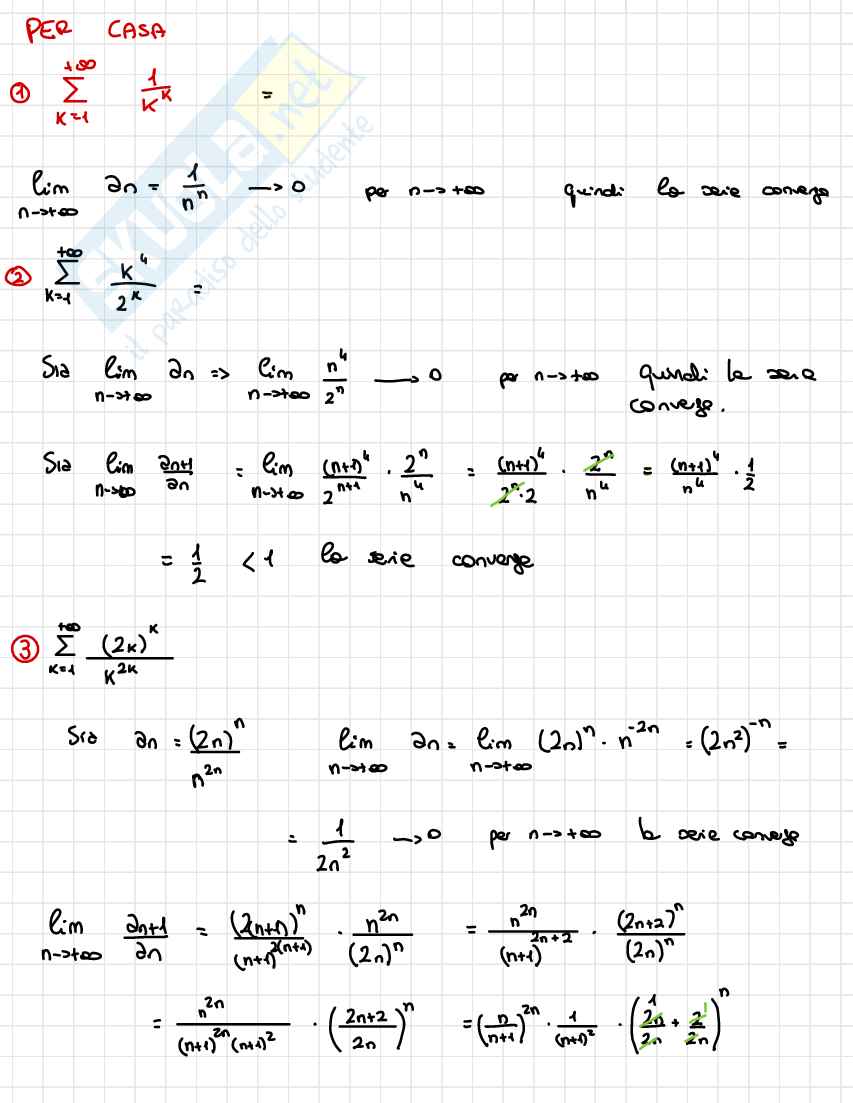 PER CASA
① \sum_{K=1}^{+∞} \frac{1}{K^K} =
SKUOLA.net
il paradiso dello studente
lim_{n→+∞} an = \frac{1}{n^n} → 0 per n→+∞ quindi la serie converge
② \sum_{K=1}^{+∞} \frac{K^4}{2^K} =
Sia lim_{n→+∞} an => lim_{n→+∞} \frac{n^4}{2^n} → 0 per n→+∞ quindi la serie
converge.
Sia lim_{n→+∞} \frac{an+1}{an} = lim_{n→+∞} \frac{(n+1)^4}{2^{n+1}} · \frac{2^n}{n^4} = \frac{(n+1)^4}{2^n·2} · \frac{2^n}{n^4} = \frac{(n+1)^4}{n^4} · \frac{1}{2}
= \frac{1}{2} < 1 la serie converge
③ \sum_{K=1}^{+∞} \frac{(2K)^K}{K^{2K}}
Sia an = \frac{(2n)^n}{n^{2n}} lim_{n→+∞} an = lim_{n→+∞} (2n)^n · n^{-2n} = (2n^2)^{-n} =
= \frac{1}{2n^2} → 0 per n→+∞ la serie converge
lim_{n→+∞} \frac{an+1}{an} = \frac{(2(n+1))^n}{(n+1)^{2(n+1)}} · \frac{n^{2n}}{(2n)^n} = \frac{n^{2n}}{(n+1)^{2n+2}} · \frac{(2n+2)^n}{(2n)^n}
= \frac{n^{2n}}{(n+1)^{2n}(n+1)^2} · (\frac{2n+2}{2n})^n = (\frac{n}{n+1})^{2n} · \frac{1}{(n+1)^2} · (\frac{2n}{2n} + \frac{2}{2n})^n